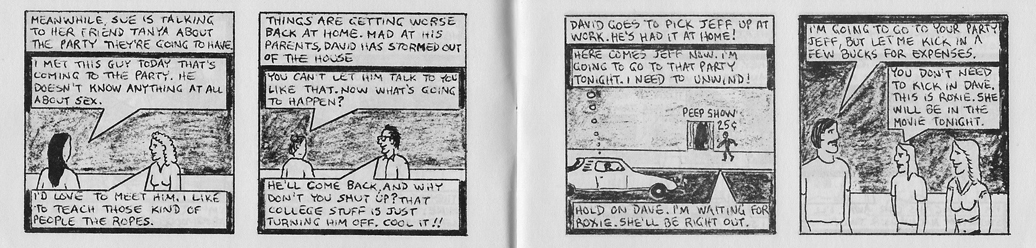 MEANWHILE, SUE IS TALKING
TO HER FRIEND TANYA ABOUT
THE PARTY THEY'RE GOING TO HAVE.
I MET THIS GUY TODAY THAT'S
COMING TO THE PARTY. HE
DOESN'T KNOW ANYTHING AT ALL
ABOUT SEX.
I'D LOVE TO MEET HIM. I LIKE
TO TEACH THOSE KIND OF
PEOPLE THE ROPES.
THINGS ARE GETTING WORSE
BACK AT HOME. MAD AT HIS
PARENTS, DAVID HAS STORMED OUT
OF THE HOUSE
YOU CAN'T LET HIM TALK TO YOU
LIKE THAT. NOW WHAT'S GOING
TO HAPPEN?
HE'LL COME BACK, AND WHY
DON'T YOU SHUT UP? THAT
COLLEGE STUFF IS JUST
TURNING HIM OFF. COOL IT!!
DAVID GOES TO PICK JEFF UP AT
WORK. HE'S HAD IT AT HOME!
HERE COMES JEFF NOW. I'M
GOING TO GO TO THAT PARTY
TONIGHT. I NEED TO UNWIND!
PEEP SHOW
25¢
HOLD ON DAVE. I'M WAITING FOR
ROXIE. SHE'LL BE RIGHT OUT.
I'M GOING TO GO TO YOUR PARTY
JEFF, BUT LET ME KICK IN A
FEW BUCKS FOR EXPENSES.
YOU DON'T NEED
TO KICK IN DAVE.
THIS IS ROXIE. SHE
WILL BE IN THE
MOVIE TONIGHT.